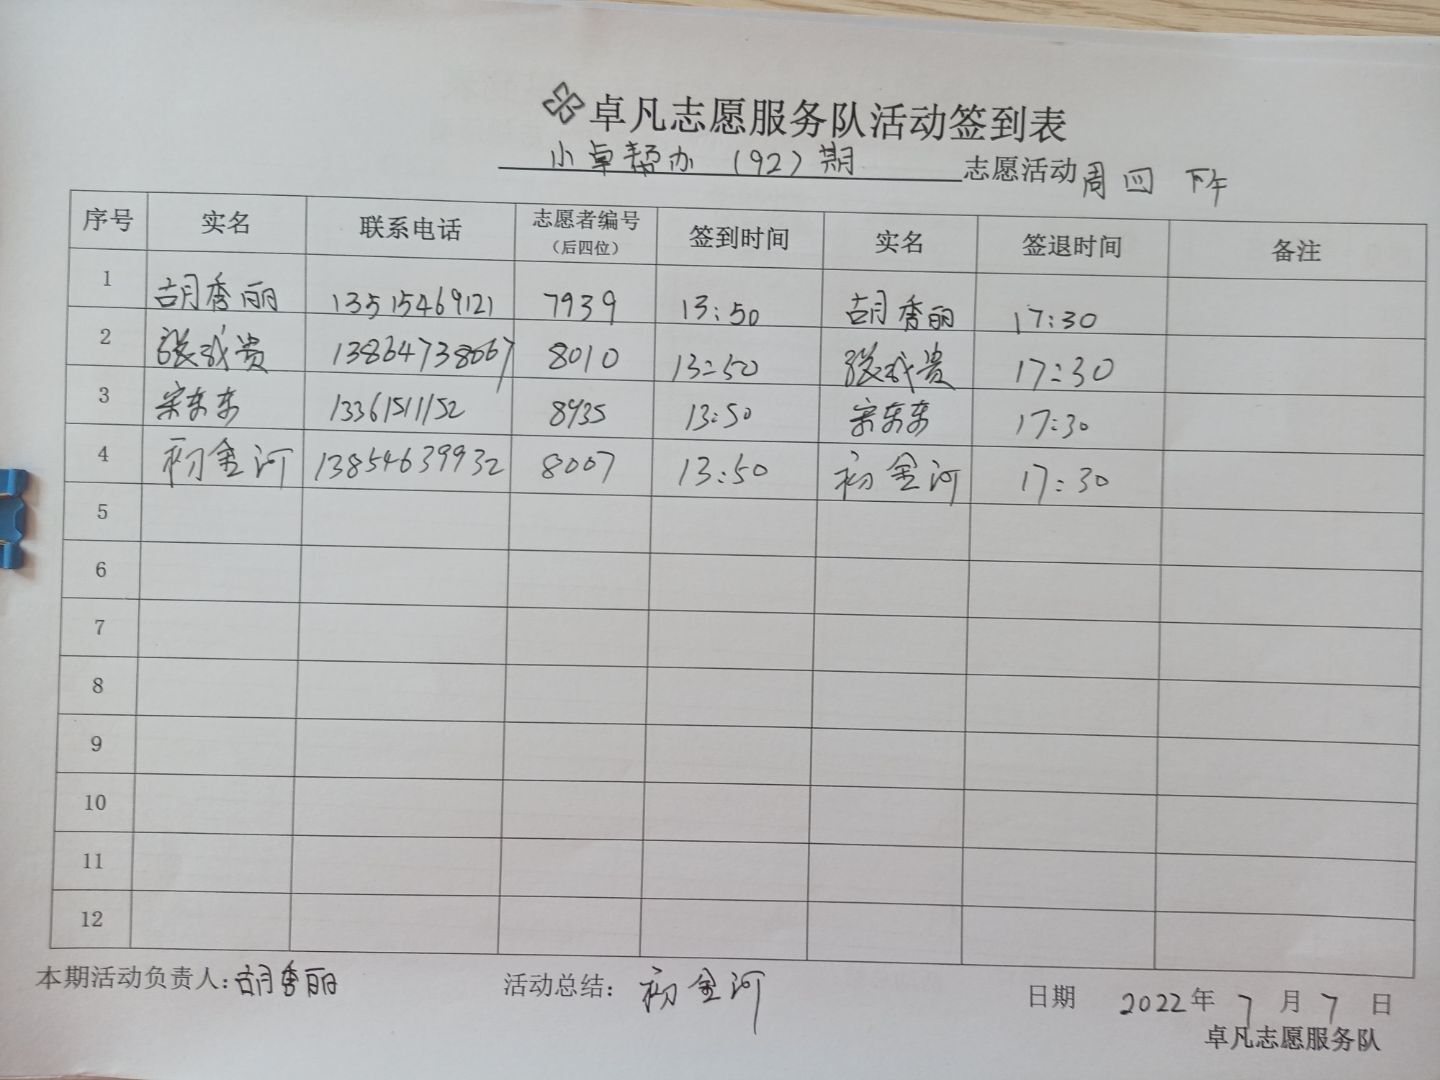 卓凡志愿服务队活动签到表
小卓帮办（92）期 志愿活动 周四 下午
序号 实名 联系电话 志愿者编号（后四位） 签到时间 实名 签退时间 备注
1 胡秀丽 13515469121 7939 13:50 胡秀丽 17:30
2 张成贵 13864738667 8010 13:50 张成贵 17:30
3 宋东东 13361511152 8935 13:50 宋东东 17:30
4 初金河 13854639932 8007 13:50 初金河 17:30
5
6
7
8
9
10
11
12
本期活动负责人：胡秀丽 活动总结：初金河 日期 2022年7月7日
卓凡志愿服务队